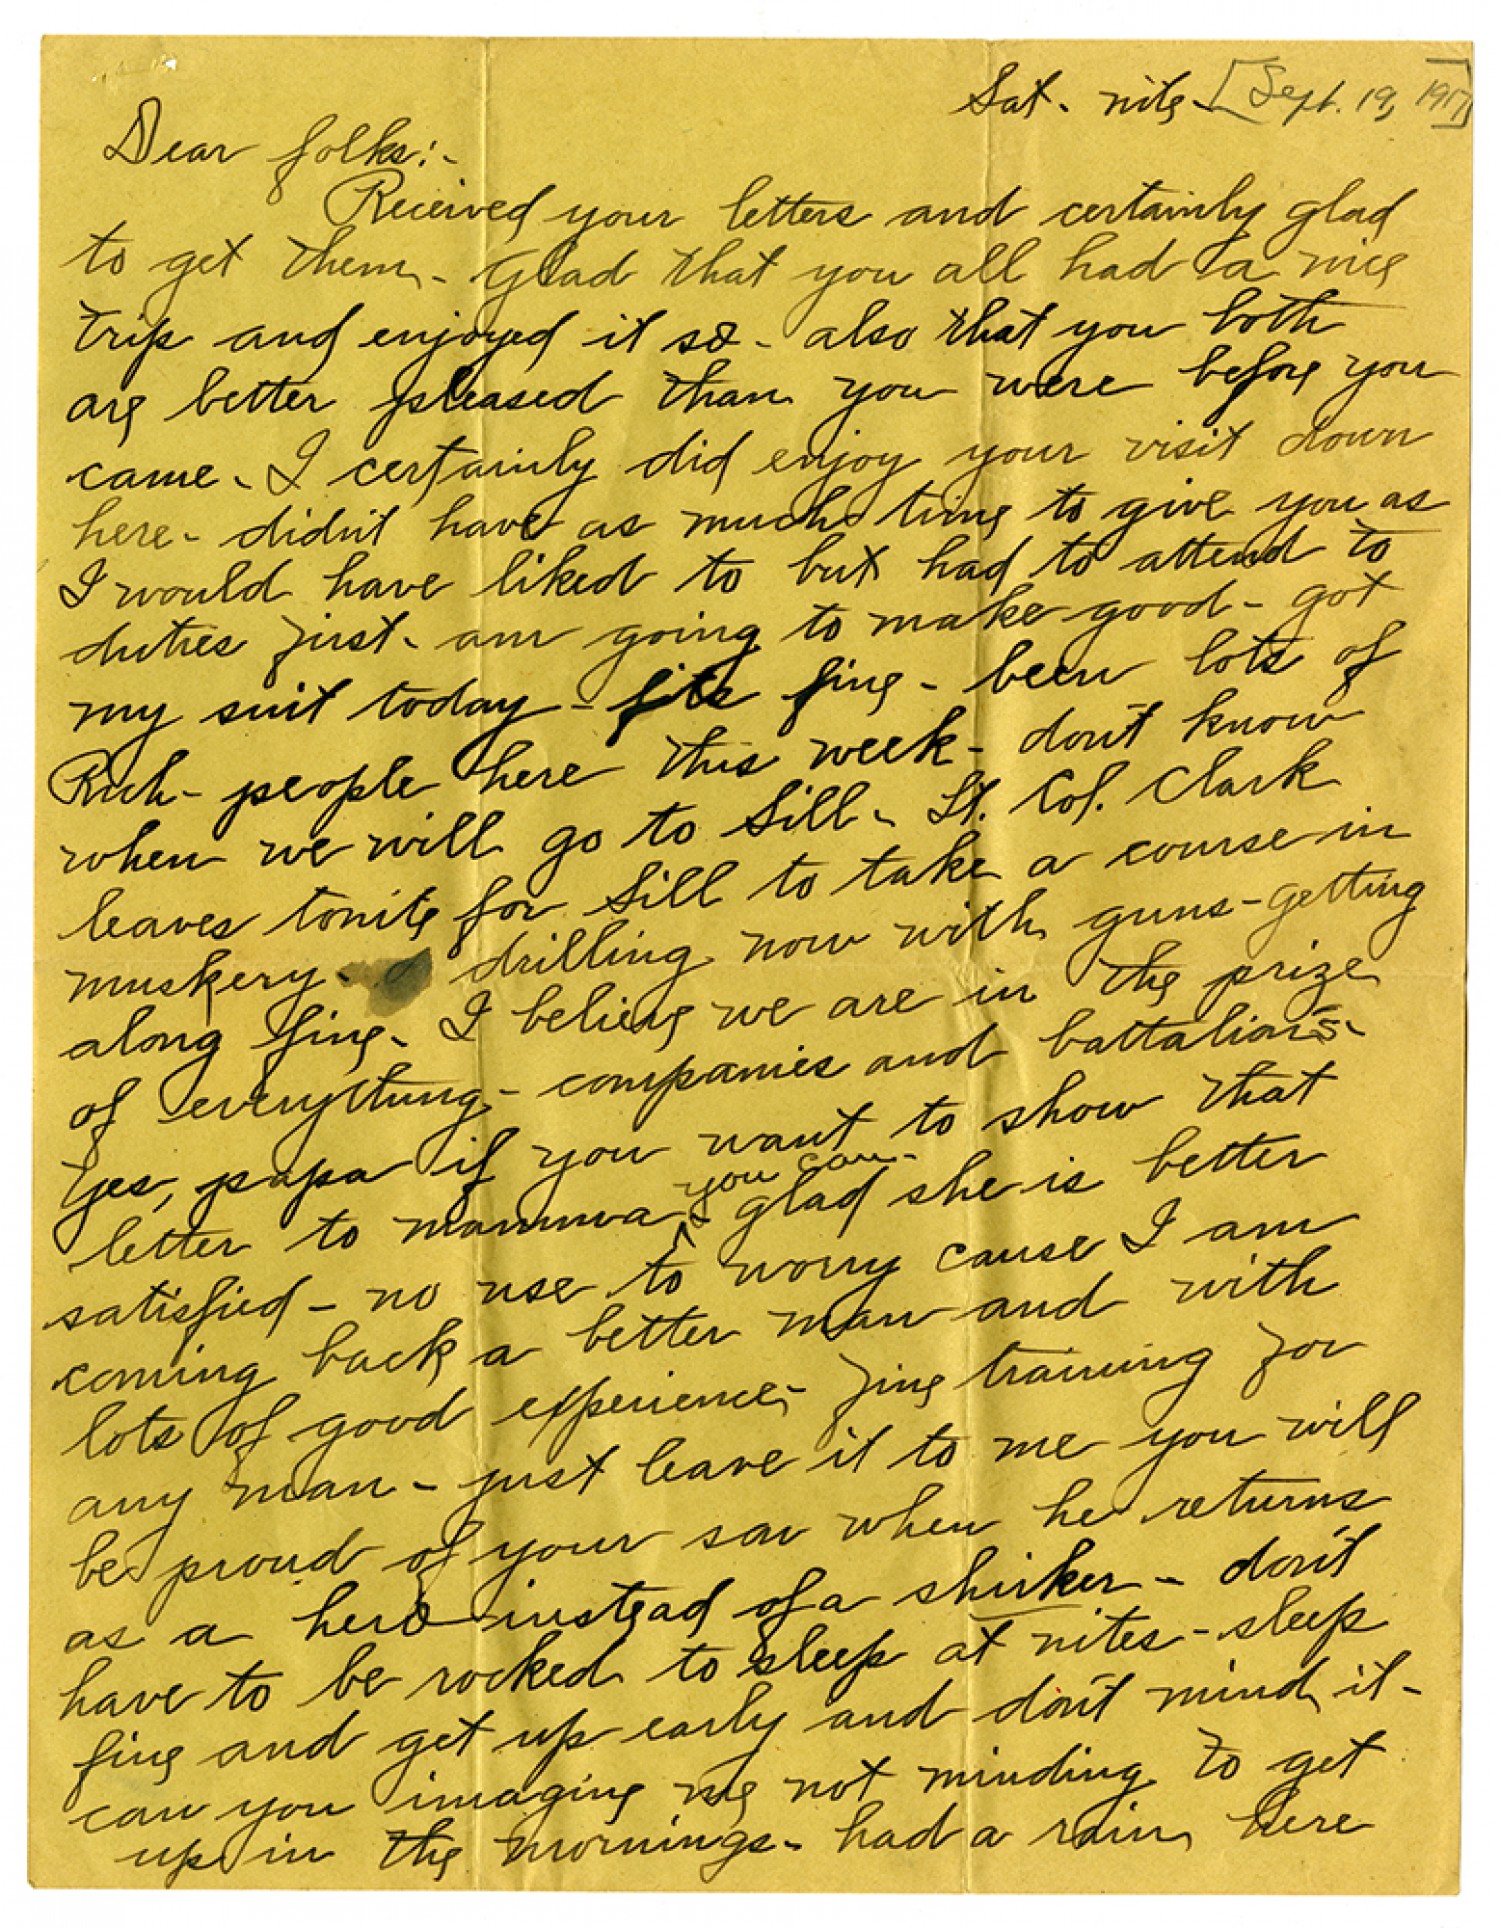 Sat. nite - [Sept. 19, 1917]
Dear folks:-
Received your letters and certainly glad
to get them - Glad that you all had a nice
trip and enjoyed it so - also that you both
are better pleased than you were before you
came - I certainly did enjoy your visit down
here - didn't have as much time to give you as
I would have liked to but had to attend to
duties first - am going to make good - got
my suit today - fits fine - been lots of
Rich - people here this week - don't know
when we will go to Sill - Lt. Col. Clark
leaves tonite for Sill to take a course in
muskery - drilling now with guns - getting
along fine - I believe we are in the prize
of everything - companies and battalions -
Yes, papa if you want to show that
letter to mamma you can - glad she is better
satisfied - no use to worry cause I am
coming back a better man and with
lots of good experience - fine training for
any man - just leave it to me you will
be proud of your son when he returns
as a hero instead of a shirker - don't
have to be rocked to sleep at nites - sleep
fine and get up early and don't mind it -
can you imagine me not minding to get
up in the mornings - had a rain here